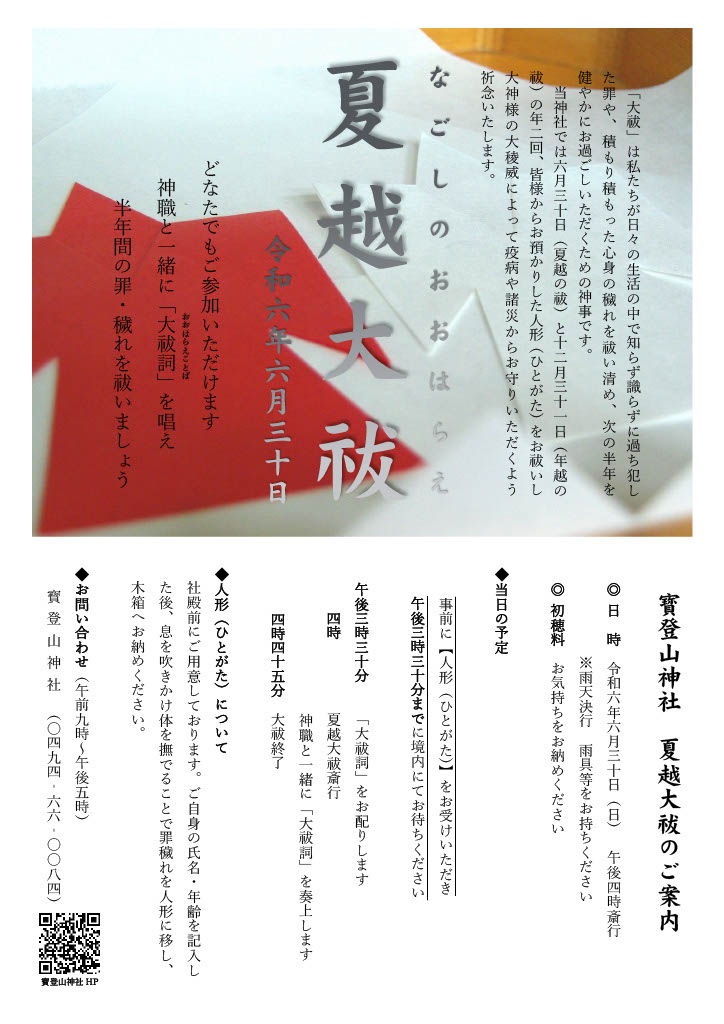 「大祓」は私たちが日々の生活の中で知らず識らずに過ち犯し
た罪や、積もり積もった心身の穢れを祓い清め、次の半年を
健やかにお過ごしいただくための神事です。
当神社では六月三十日（夏越の祓）と十二月三十一日（年越の
祓）の年二回、皆様からお預かりした人形（ひとがた）をお祓いし
大神様の大稜威によって疫病や諸災からお守りいただくよう
祈念いたします。
なごしのおおはらえ
夏越大祓
令和六年六月三十日
どなたでもご参加いただけます
神職と一緒に「大祓詞」を唱え
おおはらえことば
半年間の罪・穢れを祓いましょう
寶登山神社　夏越大祓のご案内
◎日　時　令和六年六月三十日（日）　午後四時斎行
※雨天決行　雨具等をお持ちください
◎初穂料　お気持ちをお納めください
◆当日の予定
事前に【人形（ひとがた）】をお受けいただき
午後三時三十分までに境内にてお待ちください
午後三時三十分　「大祓詞」をお配りします
四時　夏越大祓斎行
神職と一緒に「大祓詞」を奏上します
四時四十五分　大祓終了
◆人形（ひとがた）について
社殿前にご用意しております。ご自身の氏名・年齢を記入し
た後、息を吹きかけ体を撫でることで罪穢れを人形に移し、
木箱へお納めください。
◆お問い合わせ（午前九時～午後五時）
寶登山神社　（〇四九四-六六-〇〇八四）
寶登山神社 HP